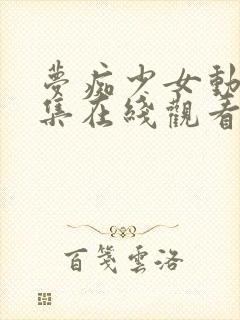 夢痴少女動
集在綫觀看
百箋雲洛